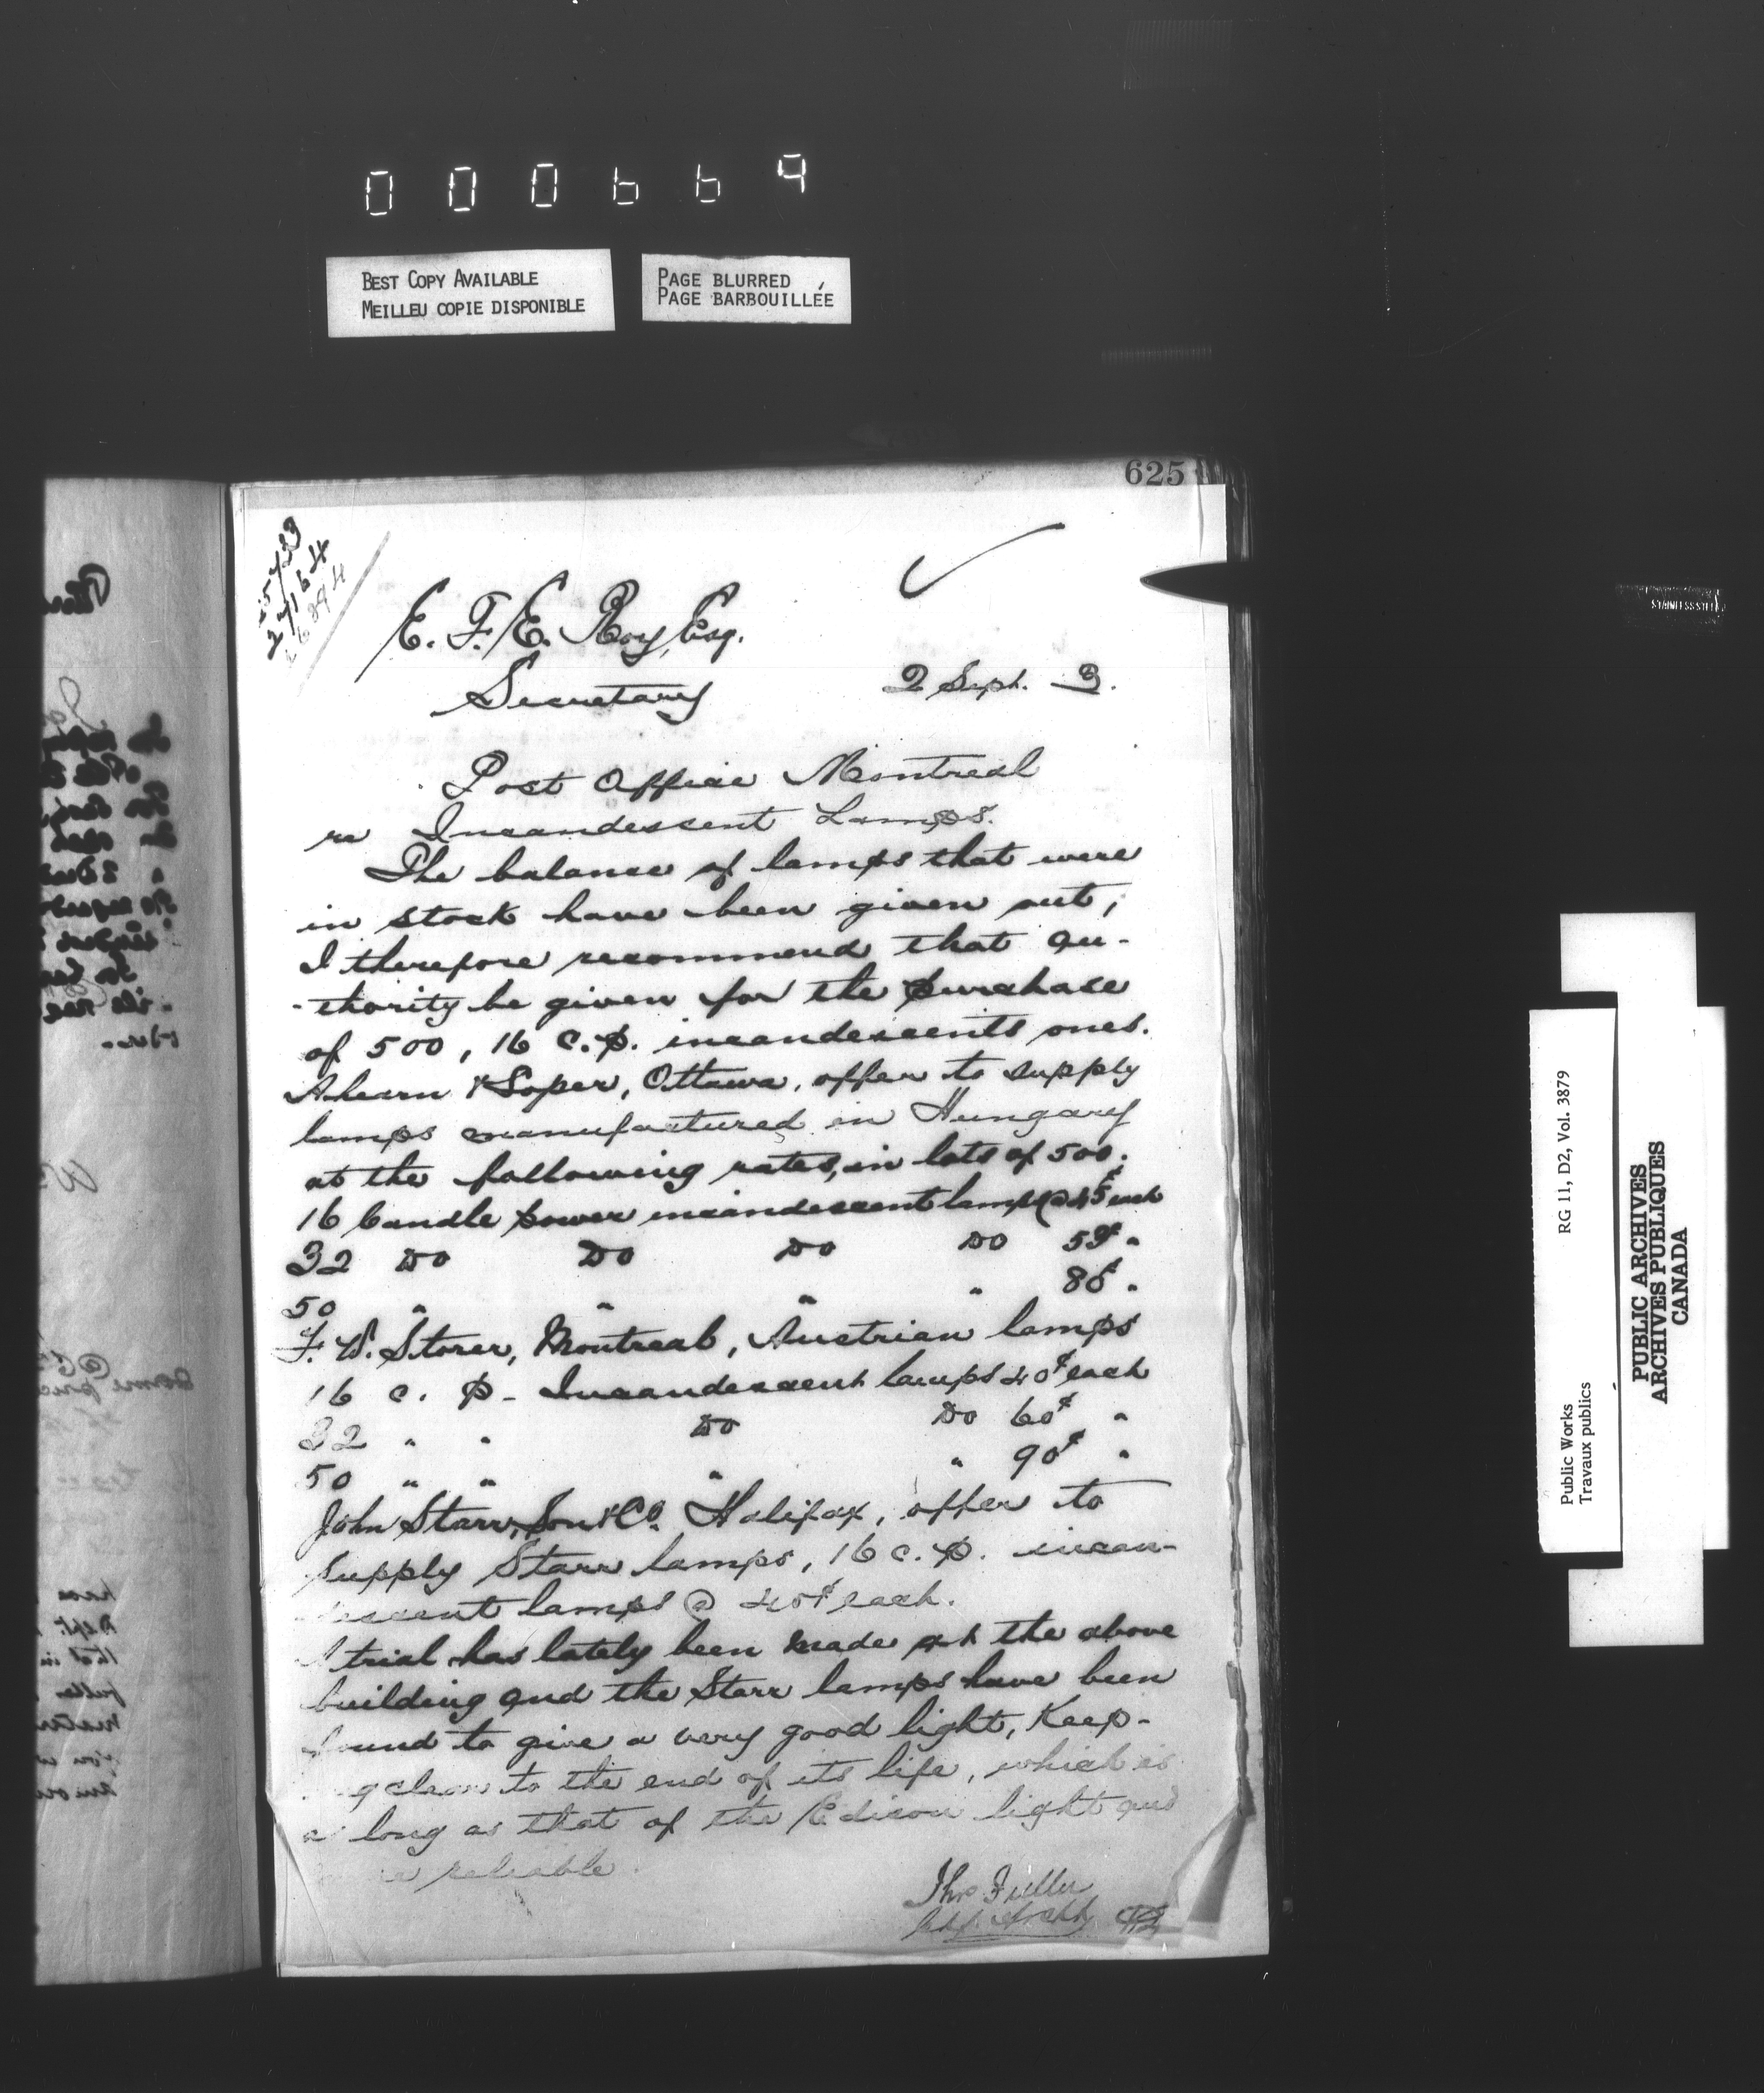 000669
BEST COPY AVAILABLE
MEILLEU COPIE DISPONIBLE
PAGE BLURRED
PAGE BARBOUILLÉE
625
E. F. E. Roy, Esq.
Secretary
2 Sept. 3.
Post Office Montreal
re Incandescent Lamps.
The balance of lamps that were
in stock have been given out,
I therefore recommend that au-
-thority be given for the purchase
of 500, 16 c.p. incandescents ones.
Ahearn & Soper, Ottawa, offer to supply
lamps manufactured in Hungary
at the following rates, in lots of 500.
16 Candle power incandescent lamps @ 45¢ each
32 Do Do Do Do 59¢ "
50 " " " " 86¢ "
F. W. Storer, Montreal, Austrian lamps
16 c. p. Incandescent lamps 40¢ each
32 " " Do Do 60¢ "
50 " " " " 90¢ "
John Starr, Son & Co. Halifax, offer to
supply Starr lamps, 16 c.p. incan-
descent lamps @ 40¢ each.
A trial has lately been made at the above
building and the Starr lamps have been
found to give a very good light, Keep-
ing clear to the end of its life, which is
as long as that of the Edison light and
reliable.
Thos Fuller
Chf. Archt.
RG 11, D2, Vol. 3879
Public Works
Travaux publics
PUBLIC ARCHIVES
ARCHIVES PUBLIQUES
CANADA